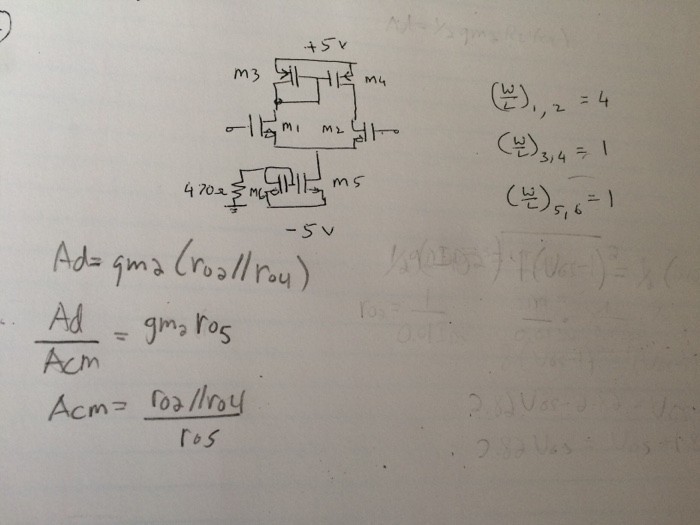 +5V
M3
M4
M1
M2
470Ω
M6
M5
-5V
(W/L)1,2 = 4
(W/L)3,4 = 1
(W/L)5,6 = 1
Ad= gm2 (ro2//ro4)
Ad/Acm = gm2 ro5
Acm= ro2//ro4/ro5